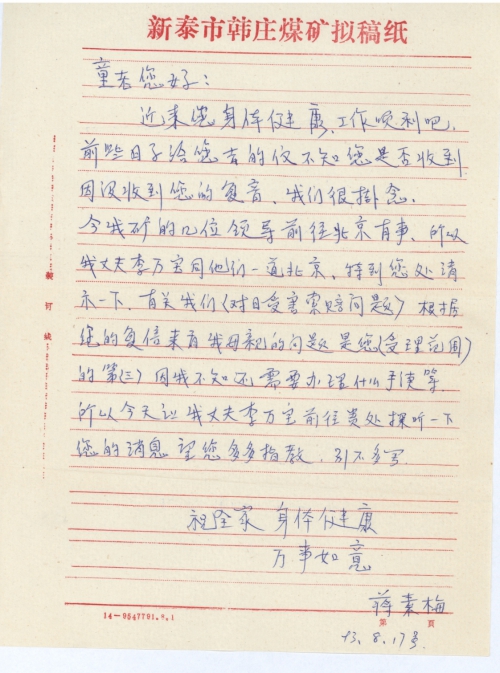 新泰市韩庄煤矿拟稿纸
童老您好：
近来您身体健康、工作顺利吧.
前些日子给您去的仪不知您是否收到
因没收到您的复音、我们很掛念.
今我矿的几位领导前往北京有事、所以
我丈夫李万宝同他们一道北京、特到您处请
示一下、有关我们《对日受害索赔问题》根据
您的复信来看我母亲的问题是您《受理范围》
的第《三》因我不知还需要办理什么手使等.
所以今天让我丈夫李万宝前往贵处探听一下
您的消息望您多多指教、别不多写
祝全家身体健康
万事如意
蒋素梅
93.8.17号
第 页
14—9547791.9.1
装订线